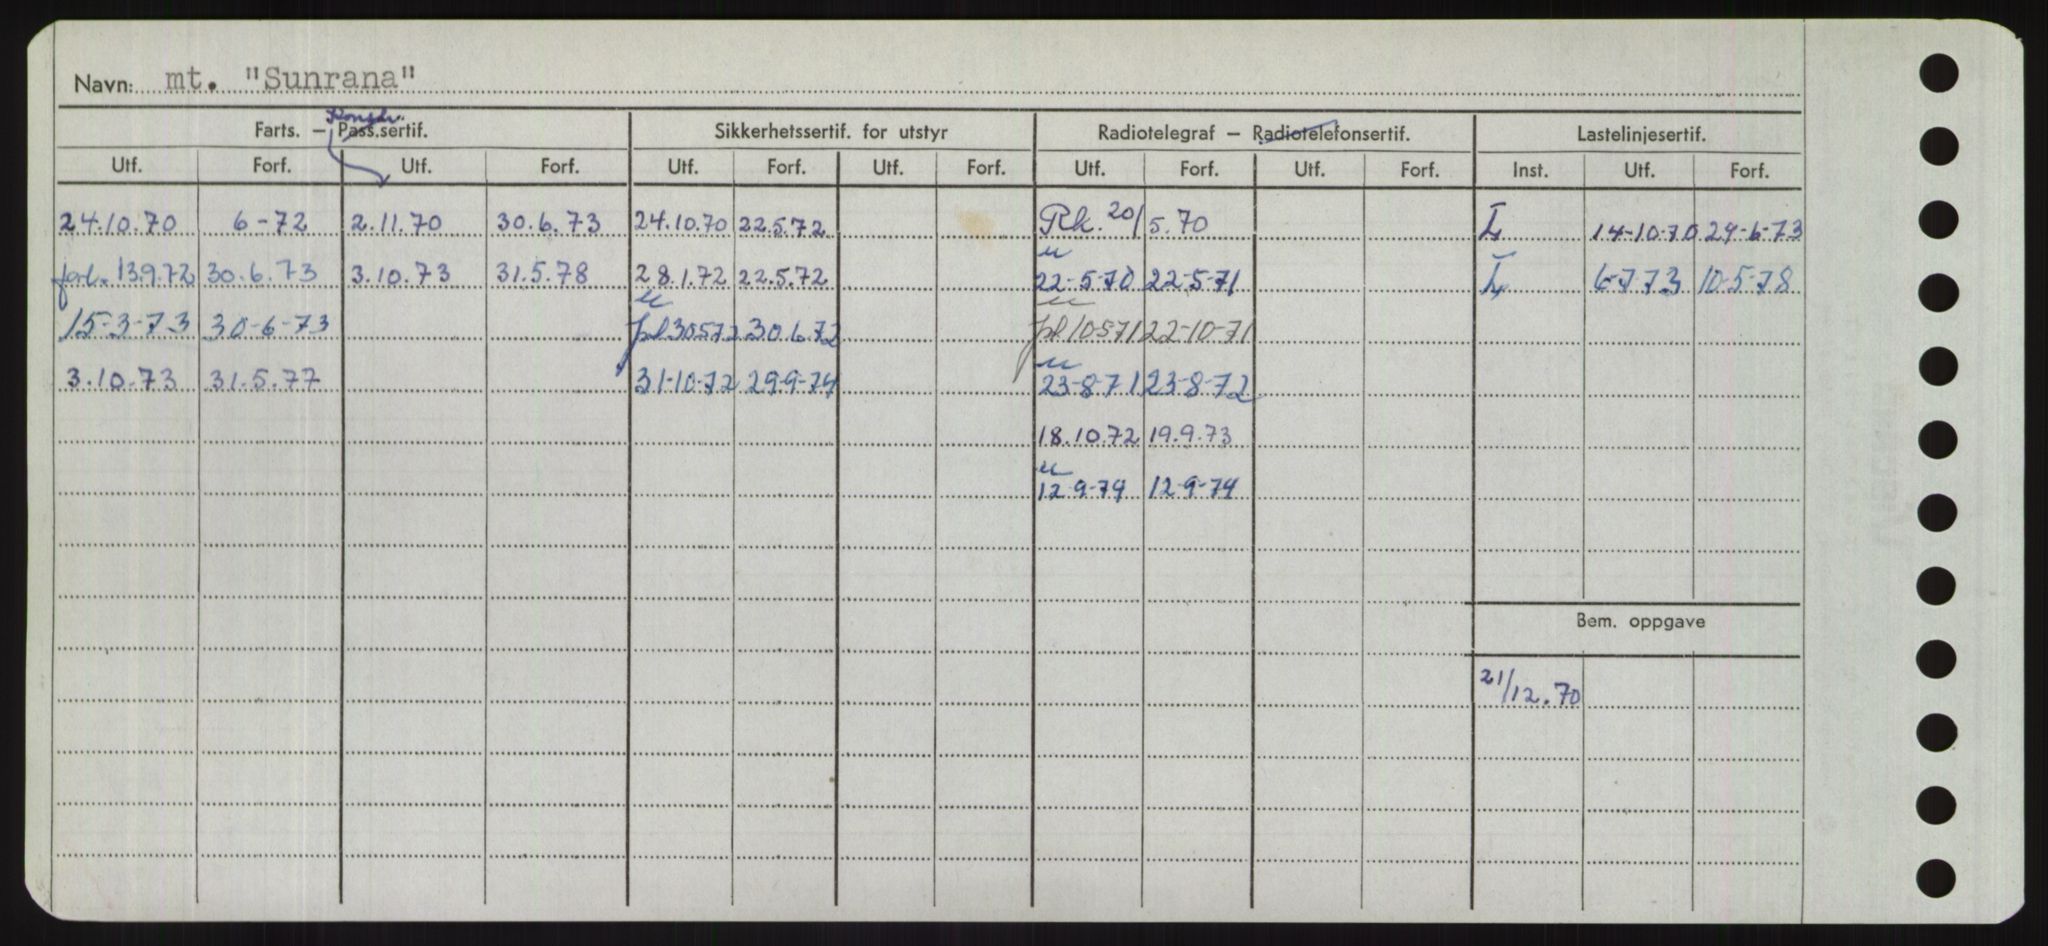 Navn: mt. "Sunrana"
Konstr.
Farts. – Pass.sertif. Sikkerhetssertif. for utstyr Radiotelegraf – Radiotelefonsertif. Lastelinjesertif.
Utf. Forf. Utf. Forf. Utf. Forf. Utf. Forf. Utf. Forf. Utf. Forf. Inst. Utf. Forf.
24.10.70 6-72 2.11.70 30.6.73 24.10.70 22.5.72 Rk. 20/5.70 L 14-10-70 29-6-73
forl. 13.9.72 30.6.73 3.10.73 31.5.78 28.1.72 22.5.72 u 22-5-70 22-5-71 L 6-7-73 10-5-78
15-3-73 30-6-73 u pl 30572 30.6.72 u pl 10571 22-10-71
3.10.73 31.5.77 31-10-72 29-9-74 u 23-8-71 23-8-72
18.10.72 19.9.73
u 12-9-74 12-9-74
Bem. oppgave
21/12.70